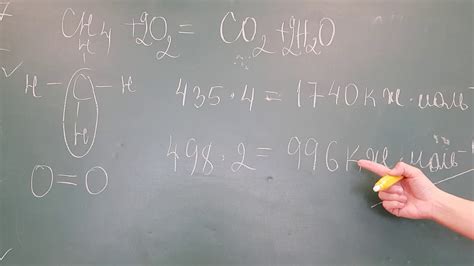 CH₄ + 2O₂ = CO₂ + 2H₂O
H – C – H
H
O=O
435 · 4 = 1740 кж · моль⁻¹
498 · 2 = 996 кж · моль⁻¹